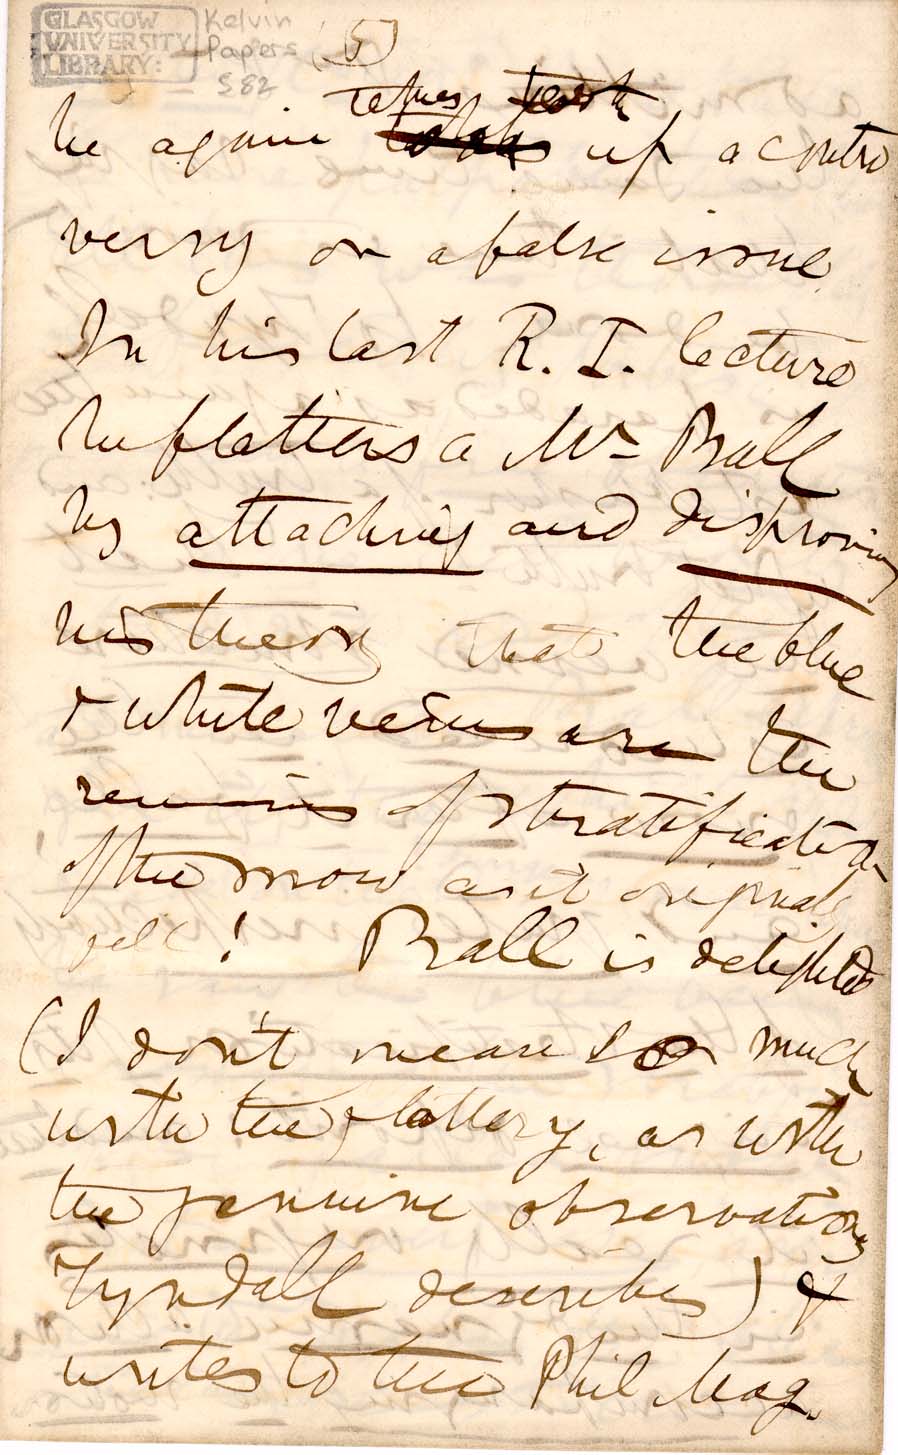 GLASGOW
UNIVERSITY
LIBRARY:
Kelvin
Papers
S82
(5)
he again takes up a contro
versy on a false issue.
In his last R. I. lecture
he flatters a Mr Ball
by attacking and disproving
his theory that the blue
& white veins are the
remains of stratification
of the snow as it originally
fell! Ball is delighted
(I don't mean so much
with the flattery, as with
the genuine observations
Tyndall describes) &
writes to the Phil Mag.